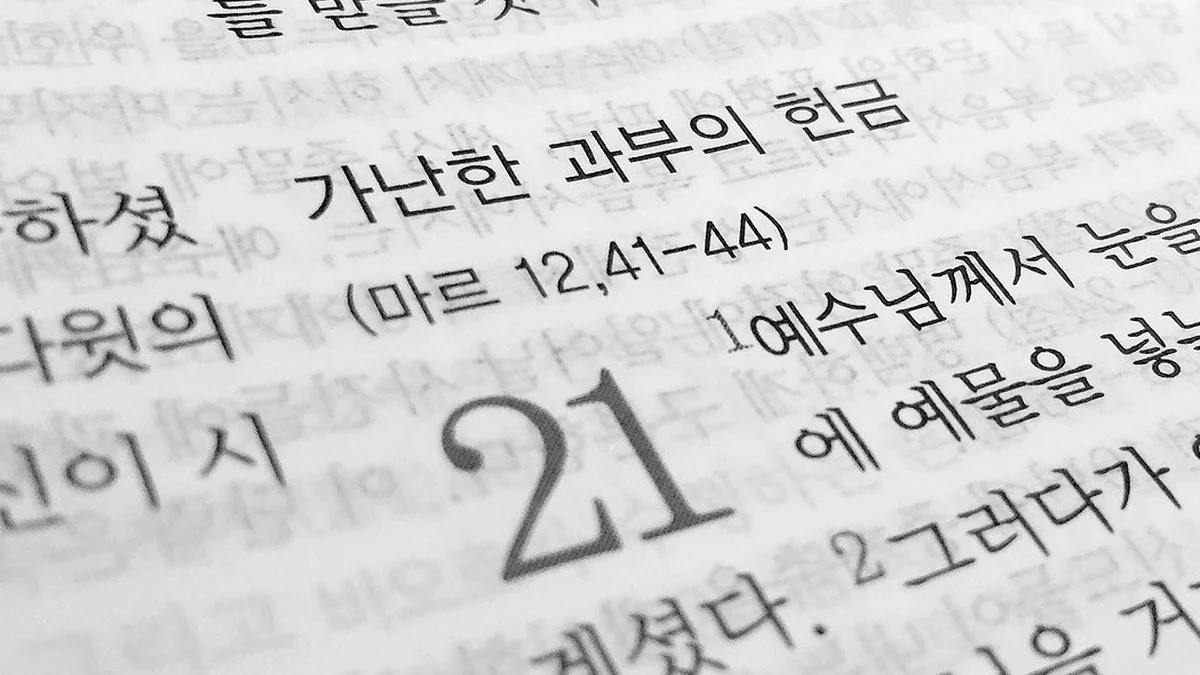 를 받을
하셨
다윗의
신이 시
가난한 과부의 헌금
(마르 12,41-44)
21
1예수님께서 눈을
에 예물을 넣는
2그러다가
계셨다.